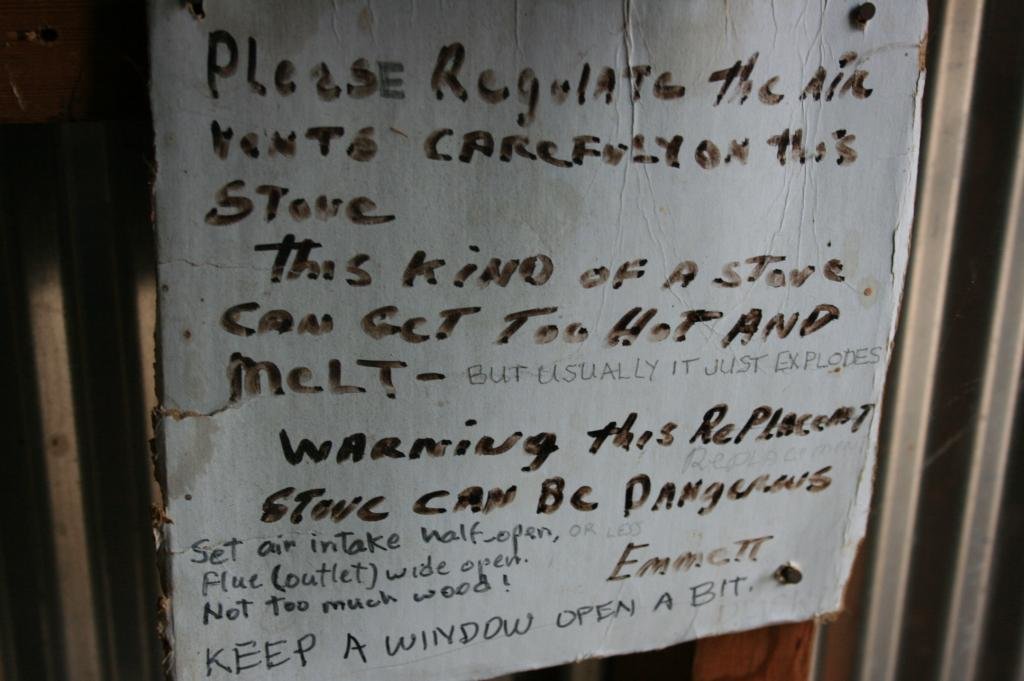 Please Regulate the Air
vents carefuly on this
stove
this kind of a stove
can get too Hot and
melt - BUT USUALLY IT JUST EXPLODES
Warning this Replacemt
Replacement
stove can Be Dangerous
Set air intake half-open, OR LESS
Flue (outlet) wide open.
Emmett
Not too much wood!
KEEP A WINDOW OPEN A BIT.